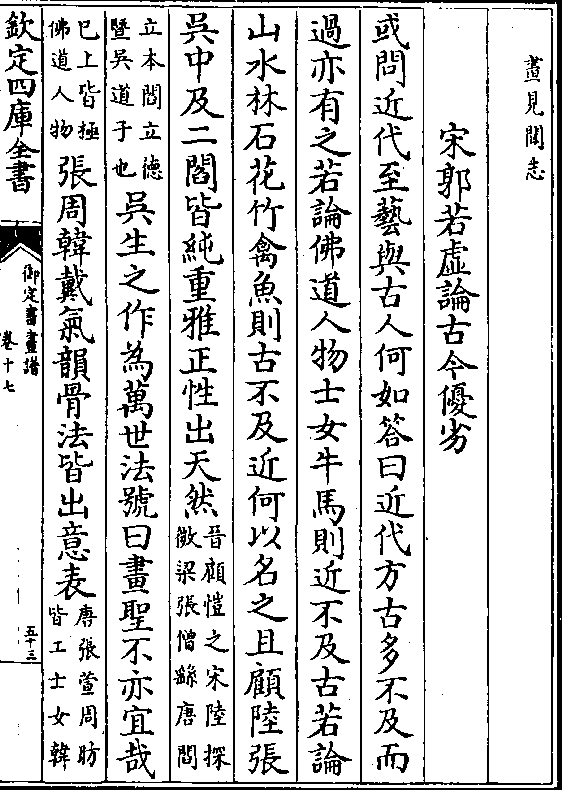 畫見聞志
宋郭若虛論古今優劣
或問近代至藝與古人何如答曰近代方古多不及而
過亦有之若論佛道人物士女牛馬則近不及古若論
山水林石花竹禽魚則古不及近何以名之且顧陸張
吳中及二閻皆純重雅正性出天然
晉顧愷之宋陸探
微梁張僧繇唐閻
立本閻立德
暨吳道子也
吳生之作為萬世法號曰畫聖不亦宜哉
巳上皆極
佛道人物
張周韓戴氣韻骨法皆出意表
唐張萱周昉
皆工士女韓
欽定四庫全書
御定書畫譜
卷十七
五十三